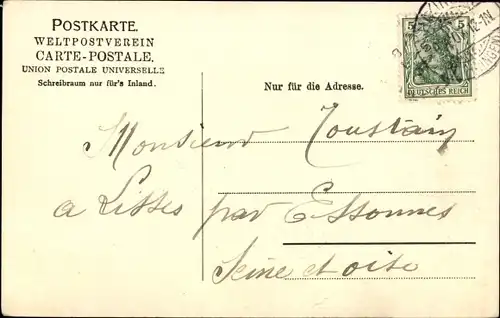 POSTKARTE.
WELTPOSTVEREIN
CARTE-POSTALE.
UNION POSTALE UNIVERSELLE
Schreibraum nur für's Inland.
Nur für die Adresse.
5 5
DEUTSCHES REICH
Monsieur Toustain
a Lisses par Essonnes
Seine et oise